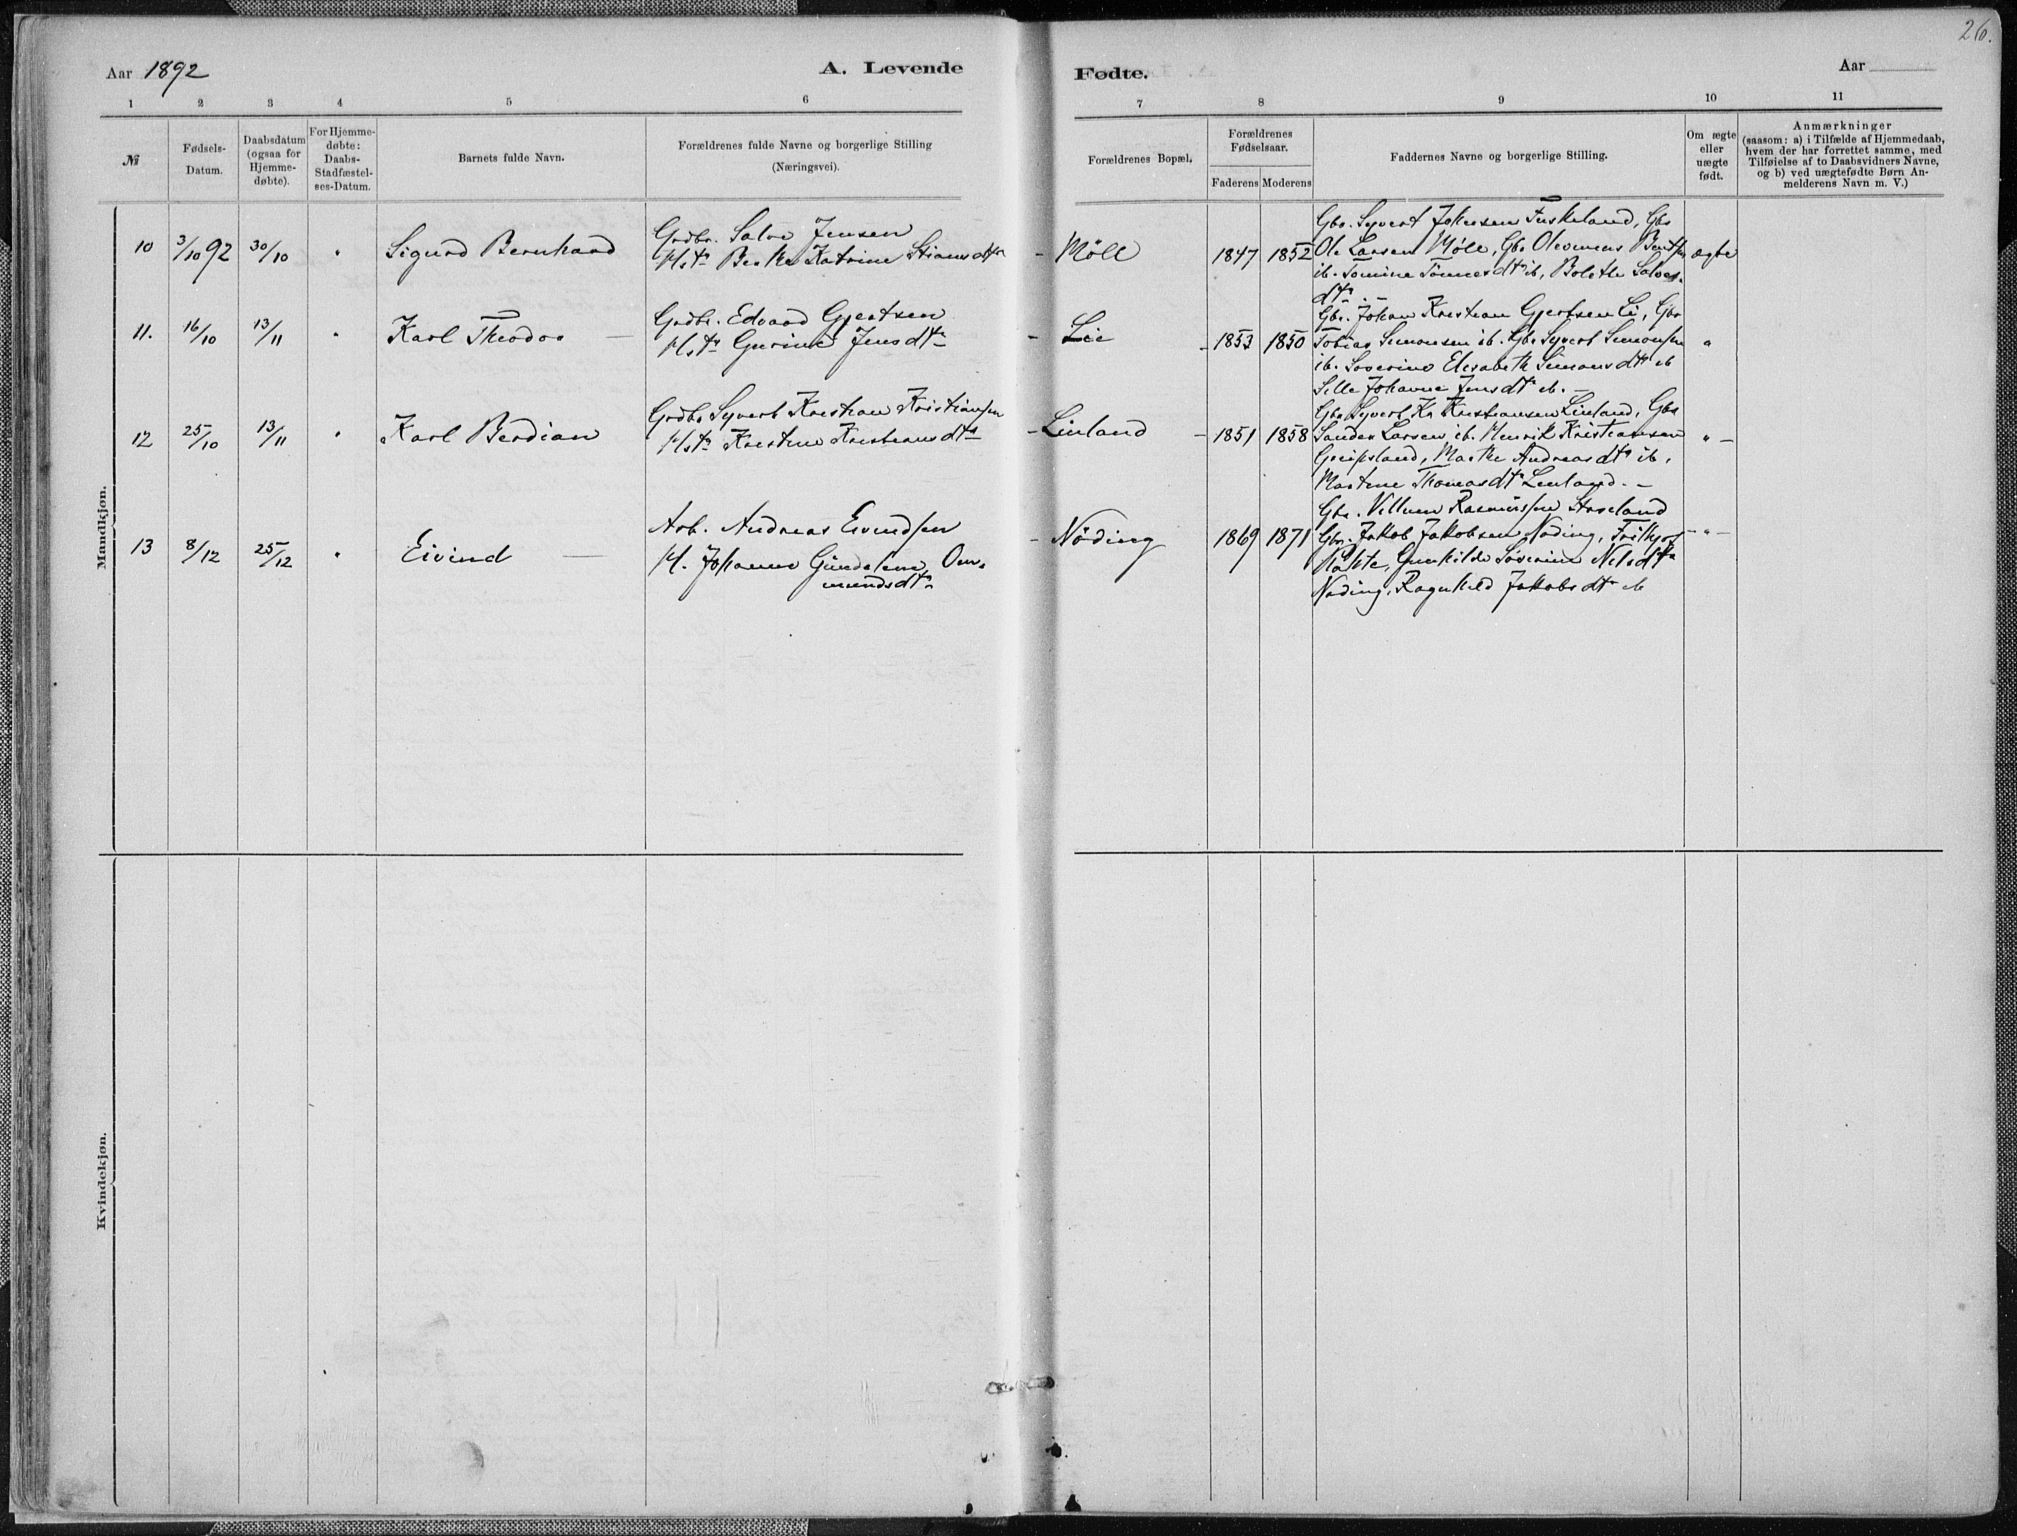 26.
Aar 1892 A. Levende Fødte. Aar
1 2 3 4 5 6 7 8 9 10 11
№
Fødsels-
Datum.
Daabsdatum
(ogsaa for
Hjemme-
døbte).
For Hjemme-
døbte:
Daabs-
Stadfæstel-
ses-Datum.
Barnets fulde Navn.
Forældrenes fulde Navne og borgerlige Stilling
(Næringsvei).
Forældrenes Bopæl.
Forældrenes
Fødselsaar.
Faderens Moderens
Faddernes Navne og borgerlige Stilling.
Om ægte
eller
uægte
født.
Anmærkninger
(saasom: a) i Tilfælde af Hjemmedaab,
hvem der har forrettet samme, med
Tilføielse af to Daabsvidners Navne,
og b) ved uægtefødte Børn An-
melderens Navn m. V.)
Mandkjøn.
10 3/10 92 30/10 " Sigurd Bernhard
Grdbr. Salve Jensen
Hstr Berthe Katrine Stiansdtr
- Möll 1847 1852
Gbr. Syvert Johnsen Fuskeland, Gbr
Ole Larsen Møll, Gbr Olevinus Bentsen
ib. Tomine Tönnesdtr ib, Bolethe Salves-
dtr
ægte
11. 16/10 13/11 " Karl Theodor —
Grdbr. Edvard Gjertsen
Hstr Gurine Jensdtr
- Lie - 1853 1850
Gbr. Johan Kristian Gjertsen Li, Gbr
Tobias Simonsen ib. Gbr Syvert Simonsen
ib. Severine Elisabeth Simonsdtr ib
Sille Johanne Jensdtr ib. -
"
12 25/10 13/11 " Karl Berdian
Grdbr Syvert Kristian Kristiansen
Hstr Kristine Kristiansdtr
- Linland - 1851 1858
Gbr Syvert Kr Kristiansen Linland, Gbr
Sander Larsen ib. Henrik Kristiansen
Greipsland, Marthe Andreasdtr ib,
Martine Thomasdtr Linland. -
" -
13 8/12 25/12 " Eivind —
Arb. Andreas Eivindsen
H. Johanne Gundeline Om-
mundsdtr
- Nöding 1869 1871
Gbr. Villum Rasmussen
Gbr. Jakob Jakobsen Nöding, Frithjof
Gunhilde Söverine Nilsdtr
Nöding, Ragnhild Jakobsdtr ib
- " -
Kvindekjøn.